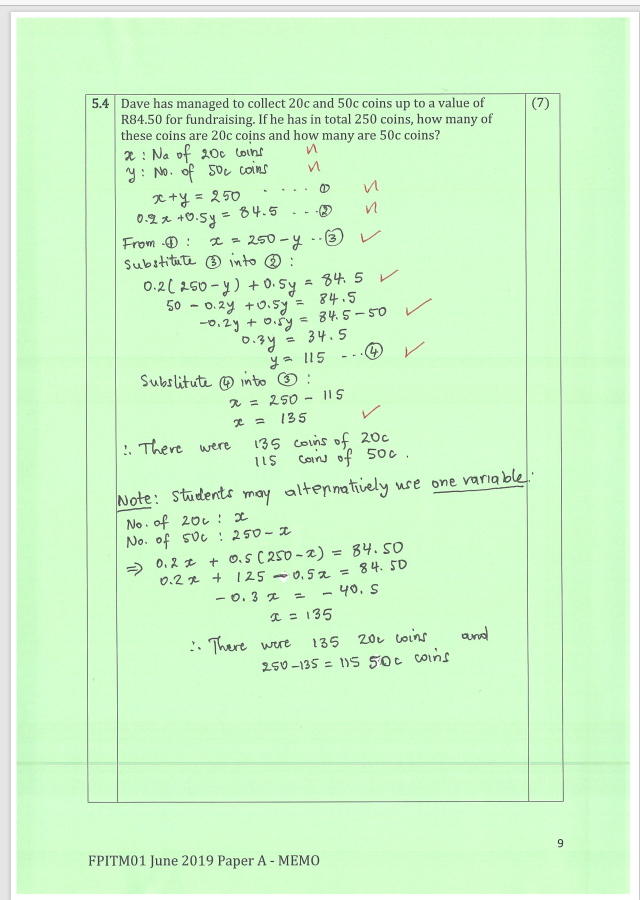 5.4 Dave has managed to collect 20c and 50c coins up to a value of (7)
R84.50 for fundraising. If he has in total 250 coins, how many of
these coins are 20c coins and how many are 50c coins?
x : No of 20c coins
y : No. of 50c coins
x + y = 250 .... ①
0.2x + 0.5y = 84.5 ...②
From ① : x = 250 - y ..③
Substitute ③ into ② :
0.2(250 - y) + 0.5y = 84.5
50 - 0.2y + 0.5y = 84.5
-0.2y + 0.5y = 84.5 - 50
0.3y = 34.5
y = 115 ...④
Substitute ④ into ③ :
x = 250 - 115
x = 135
∴ There were 135 coins of 20c
115 coins of 50c.
Note: Students may alternatively use one variable:
No. of 20c : x
No. of 50c : 250 - x
⇒ 0.2x + 0.5(250 - x) = 84.50
0.2x + 125 - 0.5x = 84.50
- 0.3x = - 40.5
x = 135
∴ There were 135 20c coins and
250 - 135 = 115 50c coins
9
FPITM01 June 2019 Paper A - MEMO